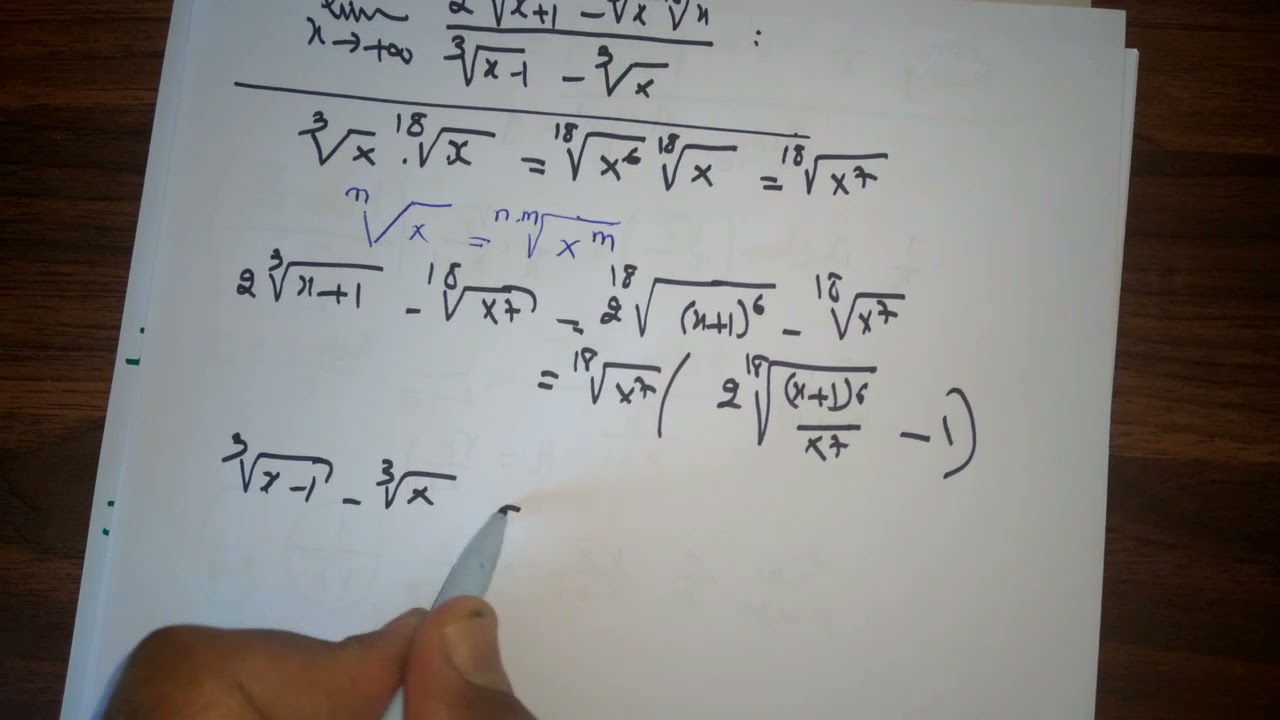 lim x→+∞ (2 ∛(x+1) − ∛x ¹⁸√x) / (∛(x−1) − ∛x) :
∛x . ¹⁸√x = ¹⁸√x⁶ ¹⁸√x = ¹⁸√x⁷
ⁿ√x = ⁿ·ᵐ√xᵐ
2 ∛(x+1) − ¹⁸√x⁷ = 2 ¹⁸√(x+1)⁶ − ¹⁸√x⁷
= ¹⁸√x⁷ ( 2 ¹⁸√((x+1)⁶/x⁷) − 1 )
∛(x−1) − ∛x